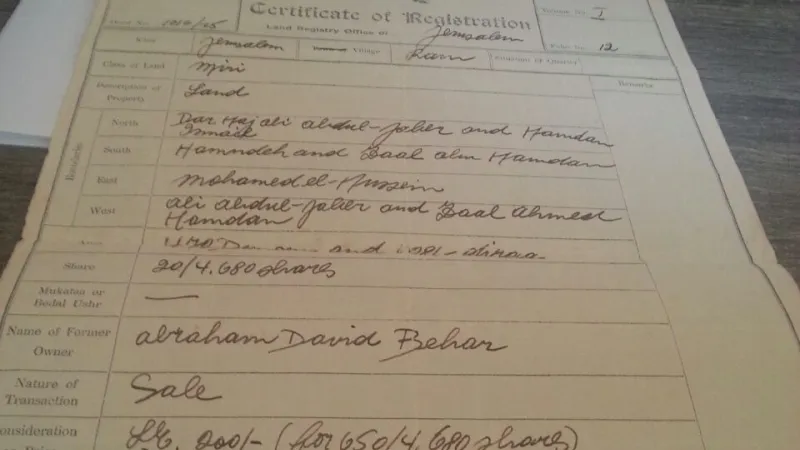 Certificate of Registration
Land Registry Office of Jerusalem
Volume No. I
Folio No. 12
Deed No. 1010/25
Jerusalem Village Ram
Class of Land Miri
Description of Property Land
Boundaries
Remarks
North Dar Haj ali abdul-jaber and Hamdan
Ismail
South Hamndeh and Zaal Hamdan
East Mohamed el-Hussein
West ali abdul-jaber and Zaal Ahmed
Hamdan
Area and
Share 20/4.680 shares
Mukataa or
Bedal Ushr —
Name of Former
Owner abraham David Behar
Nature of
Transaction Sale
Consideration
L.E. 200/- (for 650/4.680 shares)